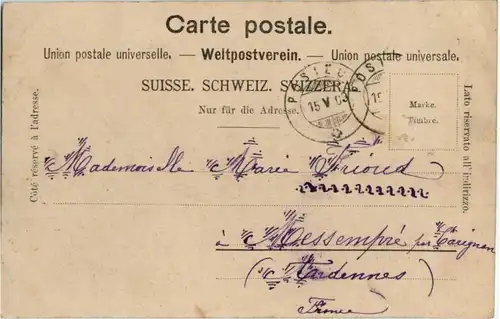 Carte postale.
Union postale universelle. — Weltpostverein. — Unione postale universale.
SUISSE. SCHWEIZ. SVIZZERA.
Nur für die Adresse.
15 V 03
Marke.
Timbre.
Côté réservé à l'adresse.
Lato riservato all'indirizzo.
Mademoiselle Marie
à Messempré par Carignan
(Ardennes)
France